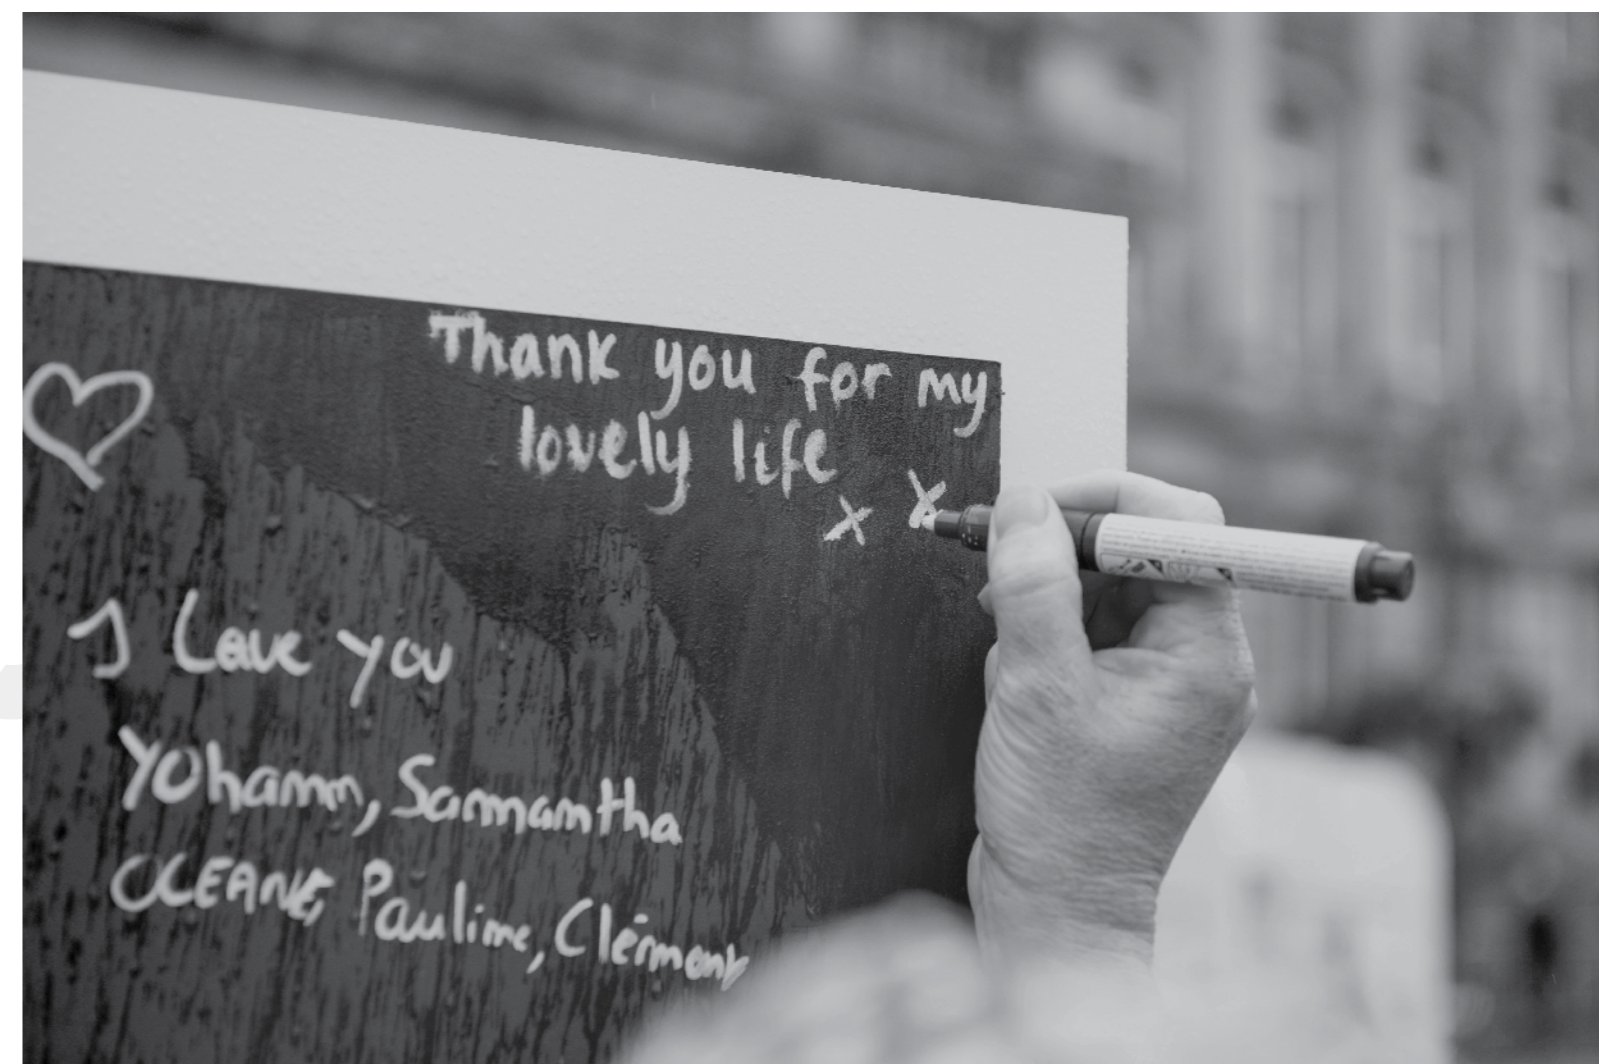 Thank you for my
lovely life
x x
I Love you
Yohann, Samantha
OCEANE, Pauline, Clément